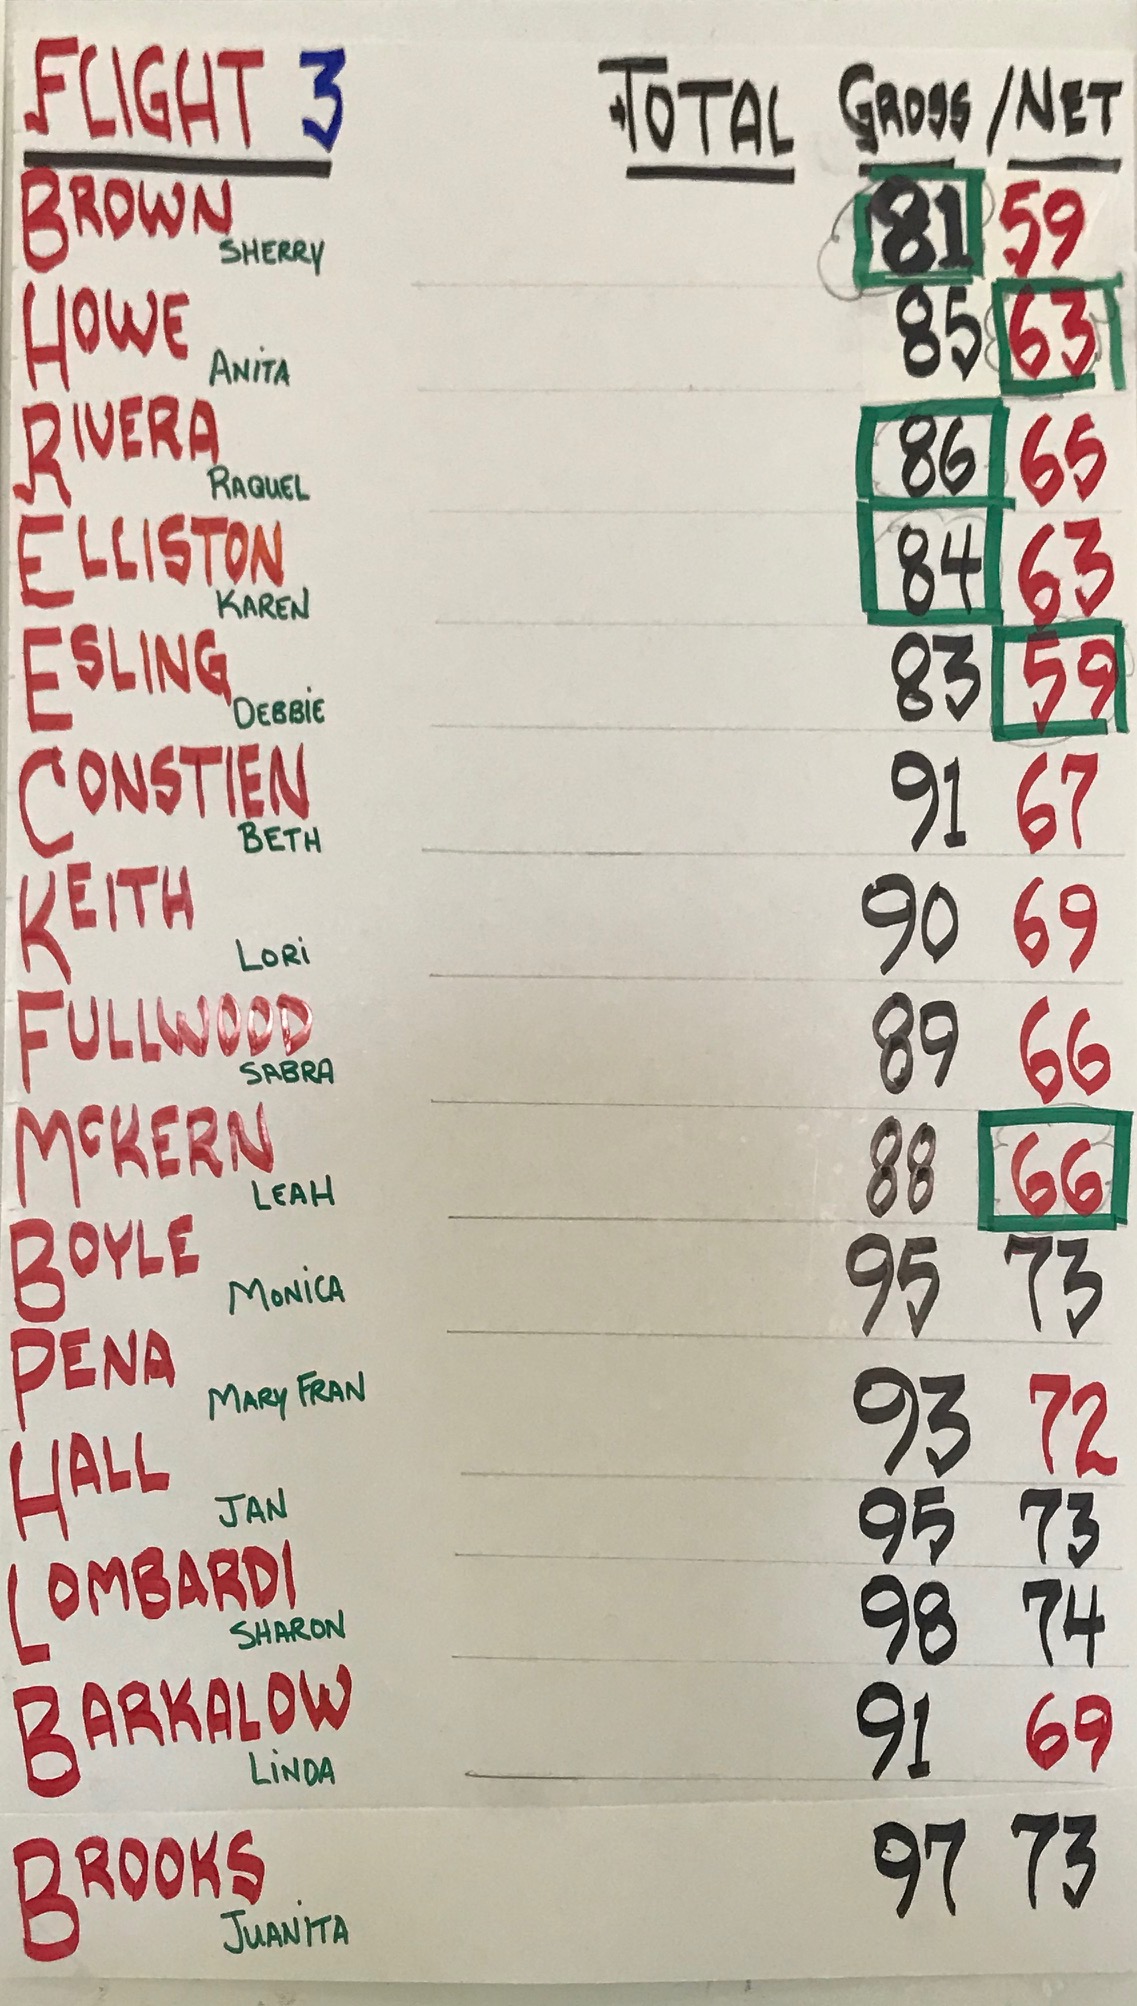 FLIGHT 3 TOTAL GROSS / NET
BROWN SHERRY 81 59
HOWE ANITA 85 63
RIVERA RAQUEL 86 65
ELLISTON KAREN 84 63
ESLING DEBBIE 83 59
CONSTIEN BETH 91 67
KEITH LORI 90 69
FULLWOOD SABRA 89 66
McKERN LEAH 88 66
BOYLE MONICA 95 73
PENA MARY FRAN 93 72
HALL JAN 95 73
LOMBARDI SHARON 98 74
BARKALOW LINDA 91 69
BROOKS JUANITA 97 73